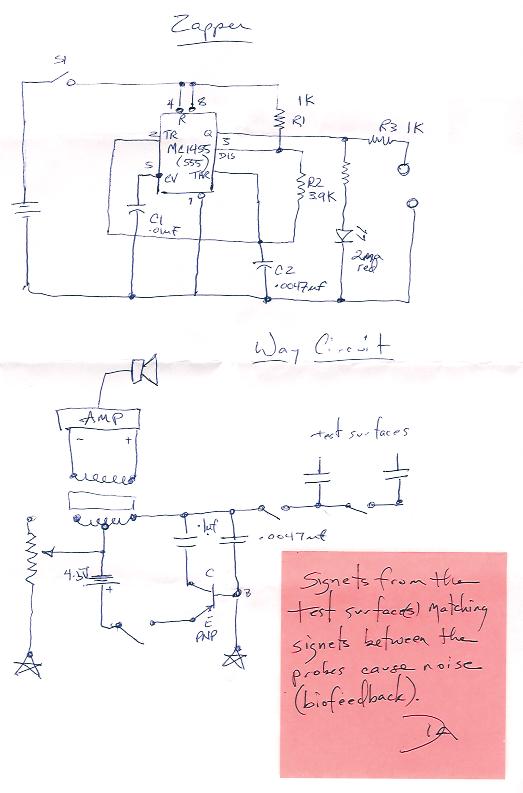 Zapper
S1
4 8
R
1K
R1
2 TR
Q 3
R3 1K
MC1455
(555)
DIS
5
CV
THR
1
R2
3.9K
C1
.01uF
C2
.0047uf
2ma
red
Way Circuit
AMP
- +
test surfaces
.1uf
.0047uf
4.5V
+
C
B
E
PNP
Signets from the
test surface(s) matching
signets between the
probes cause noise
(biofeedback).